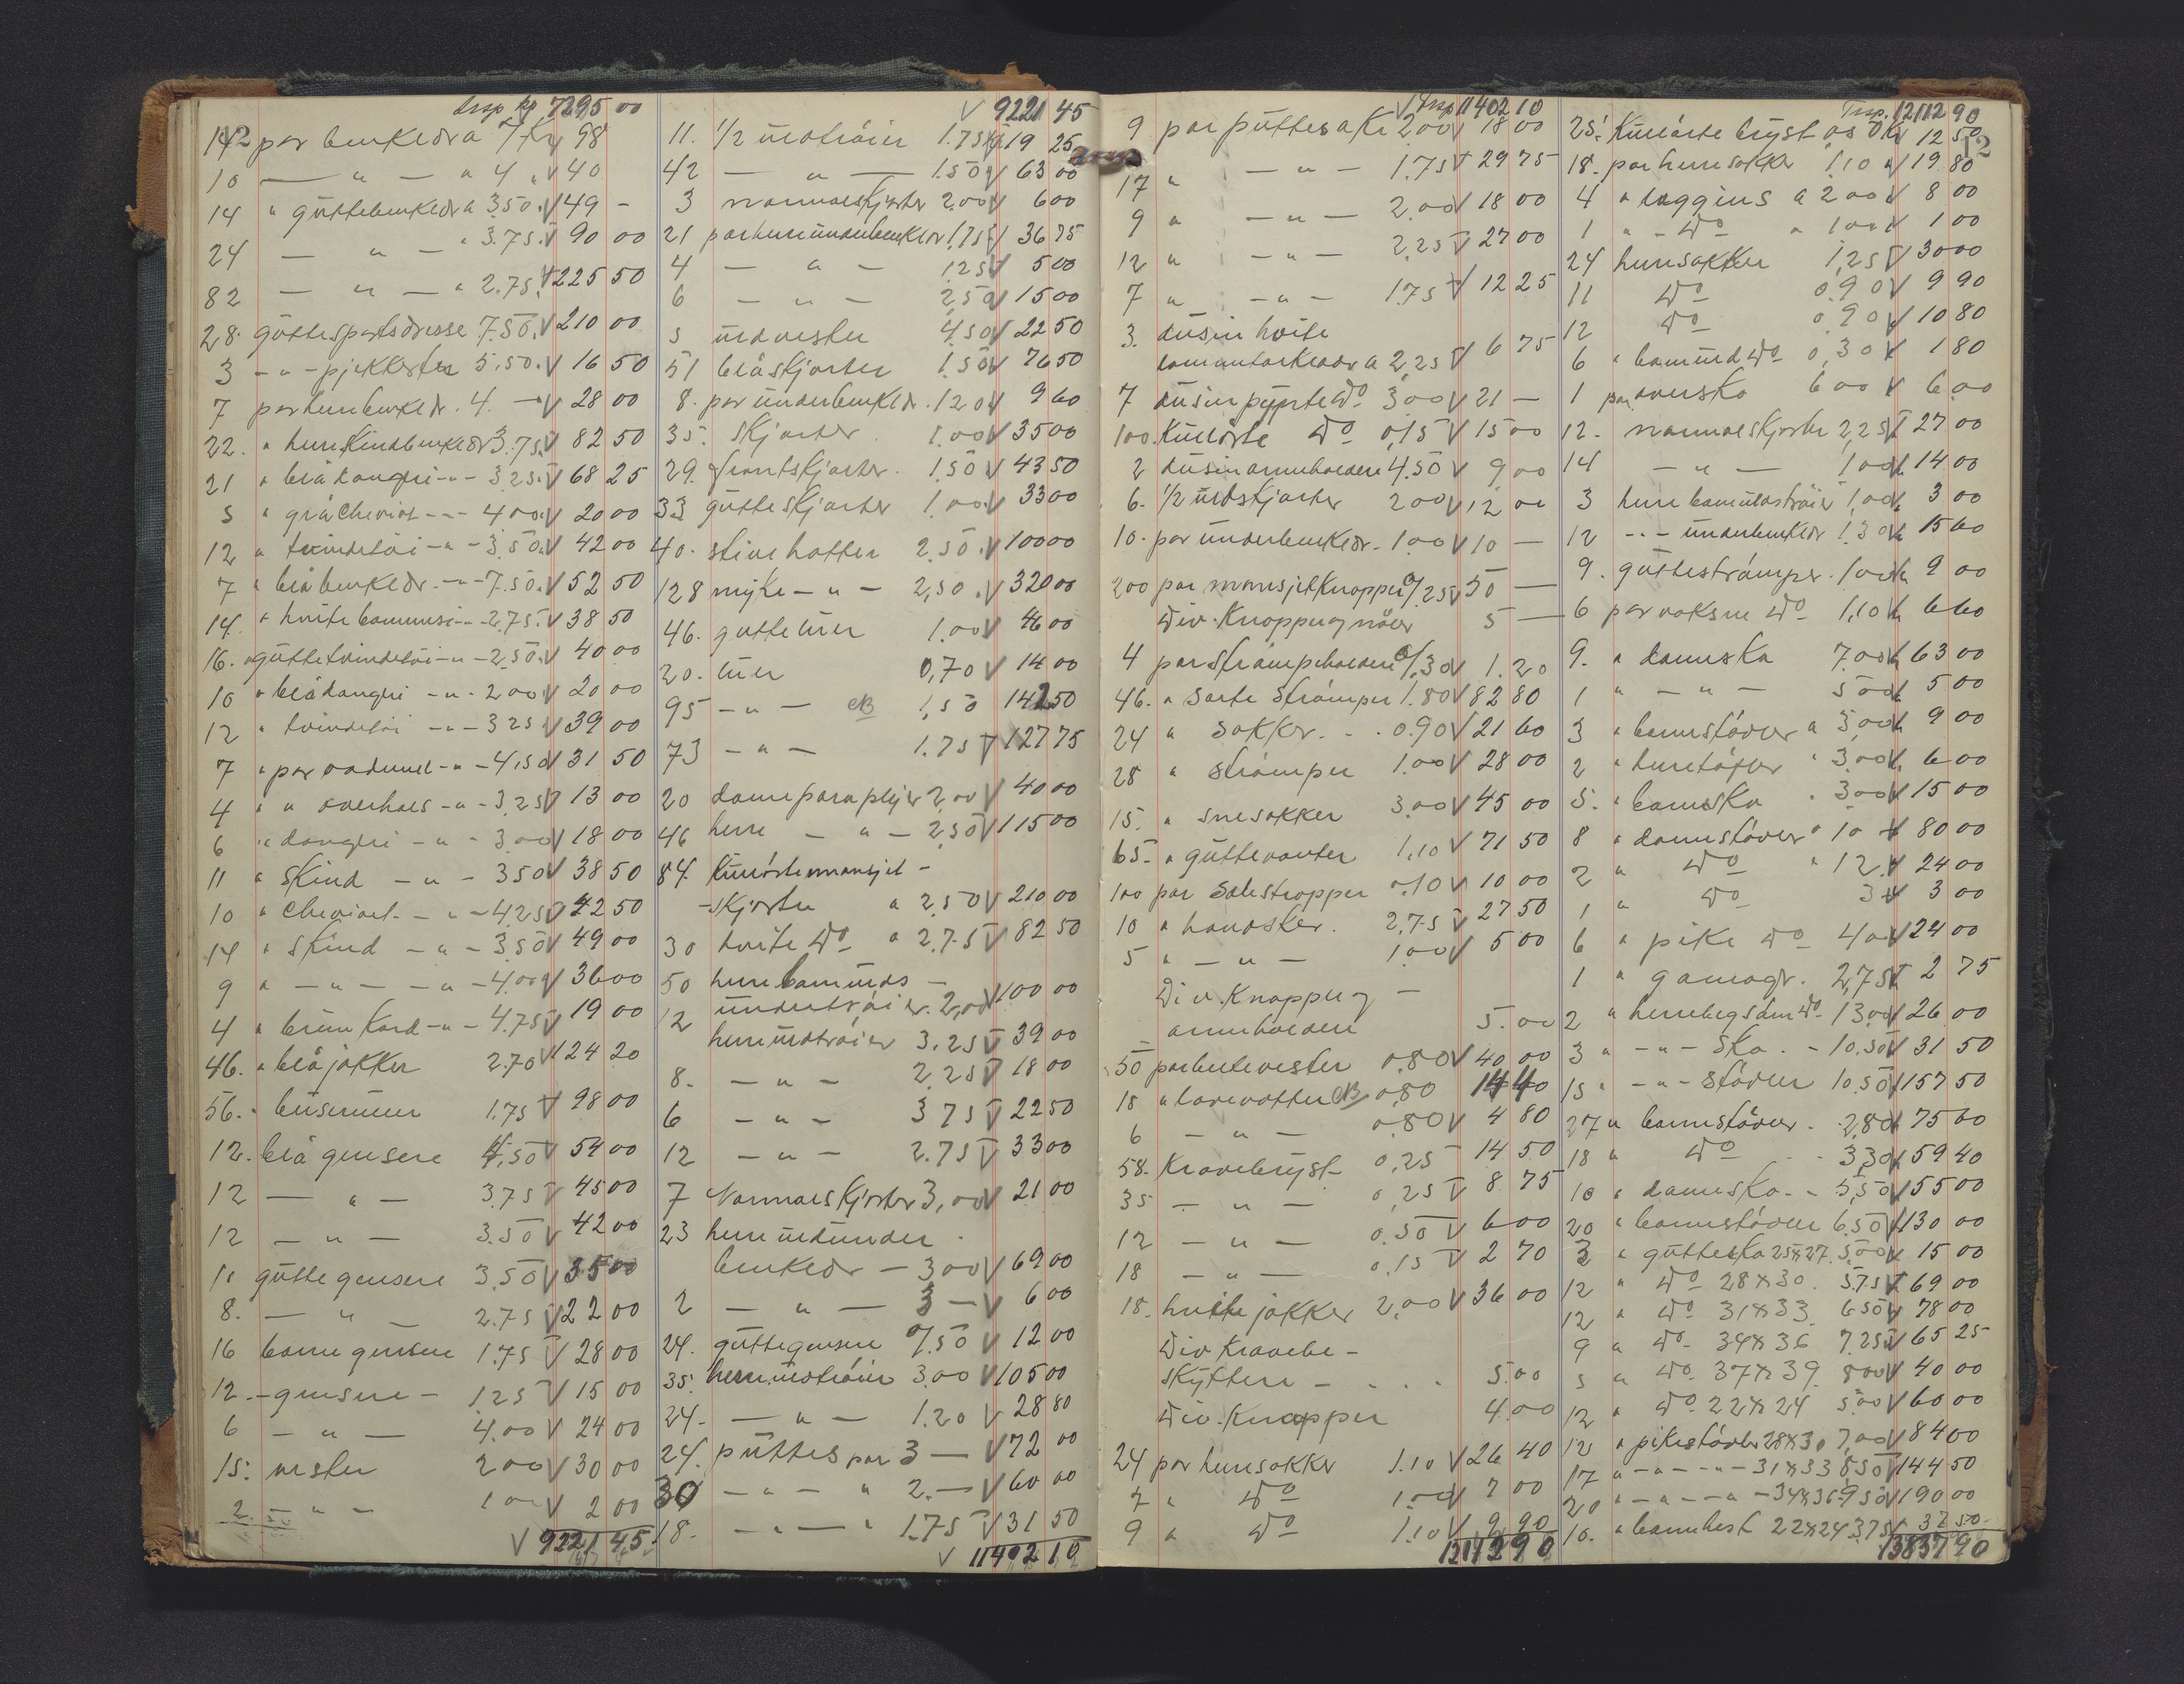 Trsp kr 7295 00
12
14 par benkedr a 7 Kr √ 98
10 — " — " 4 " √ 40
14 " güttebenkedr a 3.50 √ 49 -
24 — " — " 3.75 √ 90 00
82 — " — " 2.75 √ 225 50
28 güttesportsdresse 7.50 √ 210 00
3 - " - pjekkerter 5.50 √ 16 50
7 par herrebenkedr. 4. - √ 28 00
22. " herreskindbenkedr 3.75 √ 82 50
21 " blå dongeri - " - 3.25 √ 68 25
5 " grå Cheviot - " - 4.00 √ 20 00
12 " tvindetöi - " - 3.50 √ 42 00
7 " blåbenkedr. - " - 7.50 √ 52 50
14. " hvite bommesi - " - 2.75 √ 38 50
16. " güttetvindetöi - " - 2.50 √ 40 00
10 " blådongeri - " - 2.00 √ 20 00
12 " tvindetöi - " - 3.25 √ 39 00
7 " par vadmel - " - 4.50 √ 31 50
4 " " overhals - " - 3.25 √ 13 00
6 " dongeri - " - 3.00 √ 18 00
11 " skind - " - 3.50 √ 38 50
10 " Cheviot - " - 4.25 √ 42 50
14 " skind - " - 3.50 √ 49 00
9 " - " - - " - 4.00 √ 36 00
4 " brün Kord - " - 4.75 √ 19 00
46. " blåjakker 2.70 √ 124 20
56. " büserüner 1.75 √ 98 00
12. blå gensere 4.50 √ 54 00
12 — " — 3.75 √ 45 00
12 — " — 3.50 √ 42 00
10 gütte gensere 3.50 √ 35 00
8. — " — 2.75 √ 22 00
16 barne gensere 1.75 √ 28 00
12. - gensere - 1.25 √ 15 00
6 - " - 4.00 √ 24 00
15. vester 2.00 √ 30 00
2. - " - 1.00 √ 2 00
√ 9221 45
√ 9221 45
11. 1/2 üldtröier 1.75 √ 19 25
42 — " — 1.50 √ 63 00
3 normalskjorter 2.00 √ 6 00
21 par herreünderbenkledr 1.75 √ 36 75
4 — " — 1.25 √ 5 00
6 — " — 2.50 √ 15 00
5 üldvester 4.50 √ 22 50
51 blåskjorter 1.50 √ 76 50
8. par ünderbenkledr. 1.20 √ 9 60
35. skjorter 1.00 √ 35 00
29. frontskjorter. 1.50 √ 43 50
33 gütteskjorter 1.00 √ 33 00
40. stive hatter 2.50 √ 100 00
128 myke - " - 2.50 √ 320 00
46. guttelüer 1.00 √ 46 00
20. lüer 0,70 √ 14 00
95 - " - 1.50 142 50
73 - " - 1.75 √ 127 75
20 dameparaplyer 2.00 √ 40 00
46 herre - " - 2.50 √ 115 00
84 külörtemansjet -
- skjorter a 2.50 √ 210 00
30 hvite Do a 2.75 √ 82 50
50 herre bomülds -
ündertröier. 2,00 √ 100 00
12 herreüldtröier 3.25 √ 39 00
8. - " - 2.25 √ 18 00
6 - " - 3.75 √ 22 50
12 - " - 2.75 √ 33 00
7 Normalskjorter 3,00 √ 21 00
23 herreüldünder
benkledr - 3.00 √ 69 00
2 — " — 3 — √ 6 00
24. güttegensere 0/.50 √ 12 00
35. herreüldtröier 3.00 √ 105 00
24 - — " — 1.20 √ 28 80
24. püttes par 3 — √ 72 00
30 - " - " 2. - √ 60 00
18. - " - " 1.75 √ 31 50
√ 11402 10
√ Trsp 11402 10
9 par püttes a Kr 2.00 √ 18 00
17 " — " — 1.75 √ 29 75
9 " — " — 2.00 √ 18 00
12 " — " — 2.25 √ 27 00
7 " — " — 1.75 √ 12 25
3. düsin hvite
lommetørklædr a 2,25 √ 6 75
7 düsin pyntede Do 3,00 √ 21 —
100. Külörte Do 0,15 √ 15 00
2 düsin armholdere 4.50 √ 9,00
6. 1/2 üldskjorter 2.00 √ 12 00
10. par ünderbenkledr. 1.00 √ 10 —
200 par mansjetknapper 0/.25 √ 50 —
Div. Knapper og nåler 5 —
4 par strömpeholdere 0/.30 √ 1.20
46. " sorte strömper 1.80 √ 82 80
24 " sokker. . . 0.90 √ 21 60
28 " strömper 1.00 √ 28 00
15. " snesokker 3.00 √ 45 00
65. " güttevanter 1.10 √ 71 50
100 par Selestropper 0.10 √ 10 00
10 " handsker. 2,75 √ 27 50
5 " - " - 1.00 √ 5 00
Div. Knapper og -
armholdere 5.00
50 par buevester 0.80 √ 40 00
18 " lovevotter 0.80 14 40
6 - " - 0.80 √ 4 80
58. Kravebryst 0.25 14 50
35 - " - 0,25 √ 8 75
12 - " - 0.50 √ 6 00
18 - " — 0.15 √ 2 70
18. hvite jakker 2,00 √ 36 00
Div. Kravebe-
skyttere - . . . 5.00
Div. Knapper 4.00
24 par herresokker 1.10 √ 26 40
7 " Do 1.00 √ 7 00
9 " Do 1.10 √ 9 90
12112 90
Trsp. 12112 90
12
25. Külörte bryst a 50 Kr √ 12 50
18. par herresokker 1.10 √ 19 80
4 " laggins a 2.00 √ 8 00
1 " - Do " 1.00 √ 1 00
24 herresokker 1,25 √ 30 00
11 Do 0.90 √ 9 90
12 Do 0.90 √ 10 80
6 " bomüld Do 0,30 √ 1 80
1 par oversko 6 00 √ 6.00
12. normalskjorter 2,25 √ 27 00
14 — " — 1,00 √ 14 00
3 herre bomüldströier 1,00 √ 3 00
12 - " - ünderbenkledr 1.30 √ 15 60
9. gütteströmper. 1.00 √ 9 00
6 par voksne Do 1,10 √ 6 60
9. " damesko 7.00 √ 63 00
1 " - " - 5 00 √ 5 00
3 " barnestövler a 3,00 √ 9 00
2 " herretöfler " 3,00 √ 6 00
5. " barnesko " 3.00 √ 15 00
8 " damestövler " 10 √ 80 00
2 " Do " 12. √ 24 00
1 " Do 3 √ 3 00
6 " pike Do 4.00 √ 24 00
1 " gamagr. 2,75 √ 2 75
2 " herrebegsöm Do 13.00 √ 26 00
3 " - " - sko. - 10.50 √ 31 50
15 " - " - stövler 10.50 √ 157 50
27 " barnestövler. 2,80 √ 75 60
18 " Do . . 3,30 √ 59 40
10 " damesko. - 5,50 √ 55 00
20 " barnestövler 6.50 √ 130 00
3 " güttesko 25x27. 5.00 √ 15 00
12 " Do 28x30. 5.75 √ 69 00
12 " Do 31x33. 6.50 √ 78 00
9 " Do 34x36 7.25 √ 65 25
5 " Do 37x39. 8.00 √ 40 00
12 " Do 22x24 5.00 √ 60 00
12 " pikestövler 28x30 7,00 √ 84 00
17 " - " - - " - 31x33 8.50 √ 144 50
20 " - " - - " - 34x36 9.50 √ 190 00
10. " barnebest 22x24 3.75 √ 37 50
13837 90